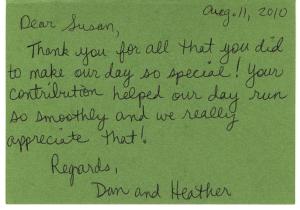 Aug. 11, 2010
Dear Susan,
Thank you for all that you did
to make our day so special! Your
contribution helped our day run
so smoothly and we really
appreciate that!
Regards,
Dan and Heather